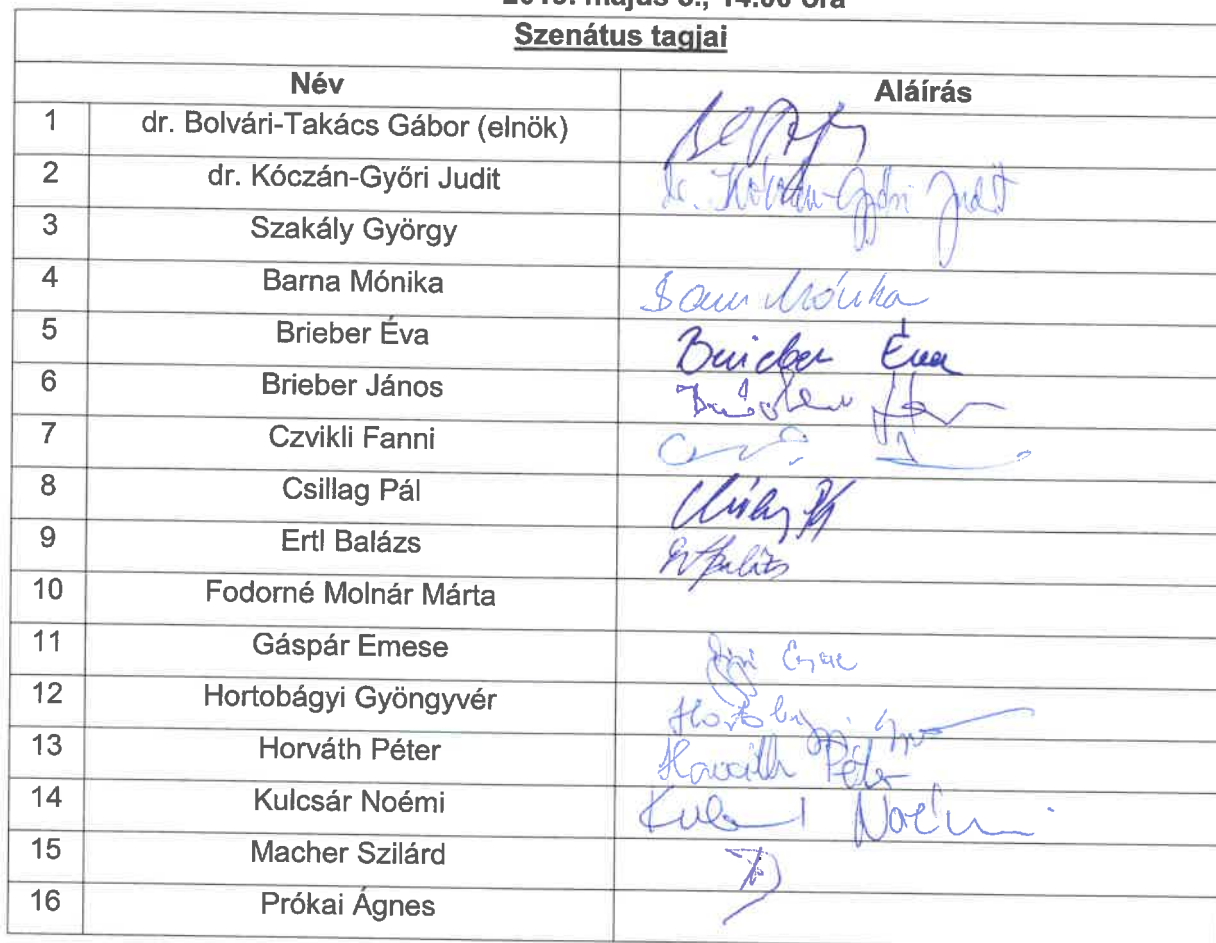 május 14.00 óra
Szenátus tagjai
Név Aláírás
1 dr. Bolvári-Takács Gábor (elnök)
2 dr. Kóczán-Győri Judit dr. Kóczán-Győri Judit
3 Szakály György
4 Barna Mónika Barna Mónika
5 Brieber Éva Brieber Éva
6 Brieber János
7 Czvikli Fanni
8 Csillag Pál
9 Ertl Balázs Ertl Balázs
10 Fodorné Molnár Márta
11 Gáspár Emese Emese
12 Hortobágyi Gyöngyvér Hortobágyi
13 Horváth Péter Horváth Péter
14 Kulcsár Noémi Kulcsár Noémi
15 Macher Szilárd
16 Prókai Ágnes